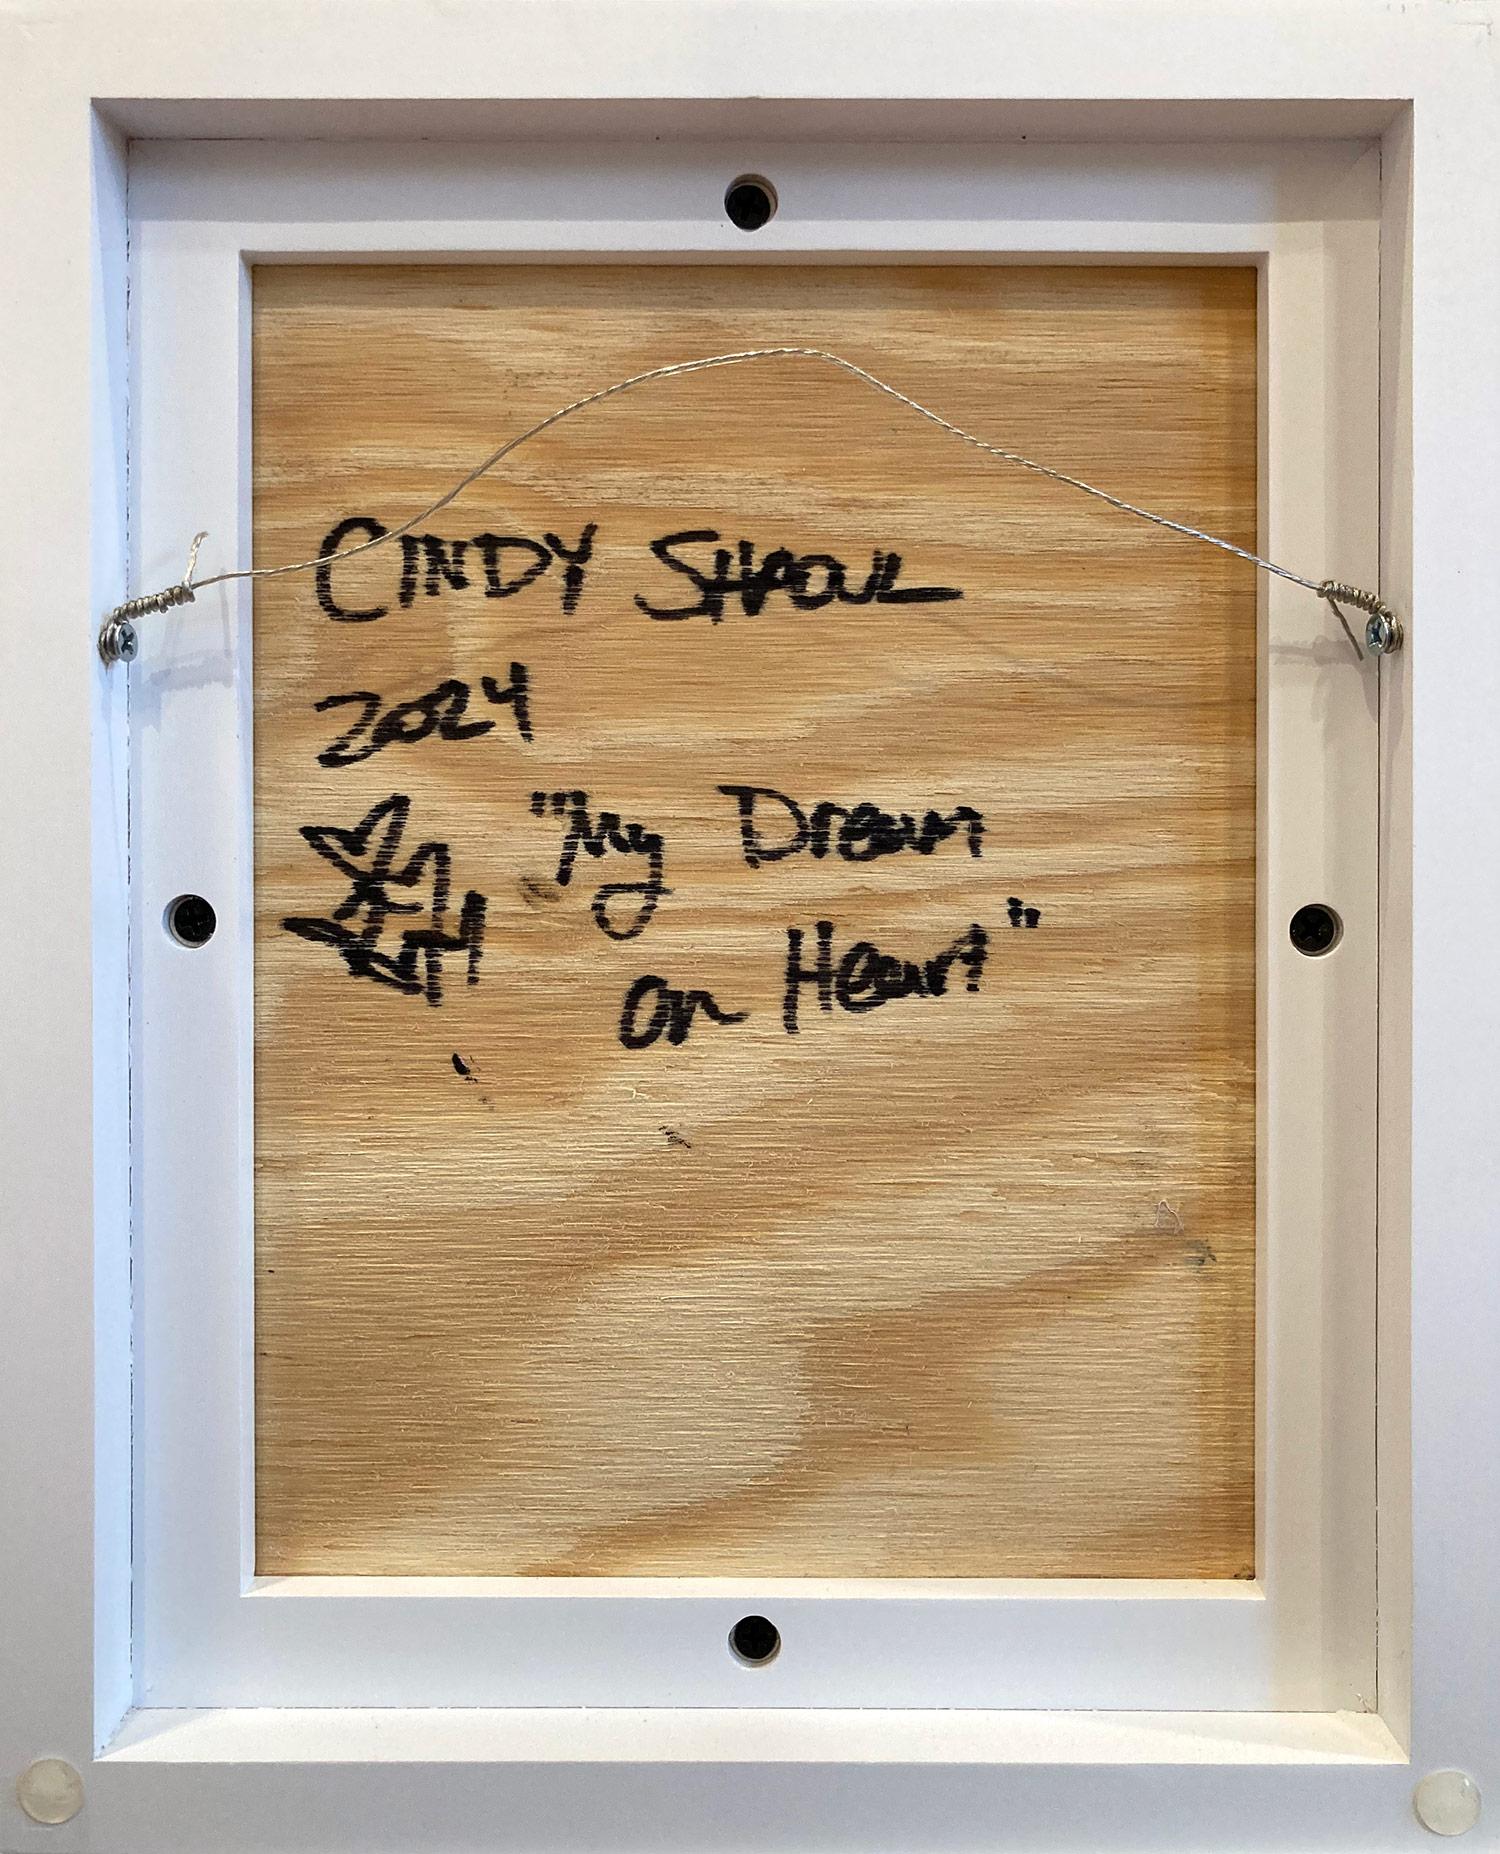 CINDY SHAOUL
2024
"My Dream
on Heart"